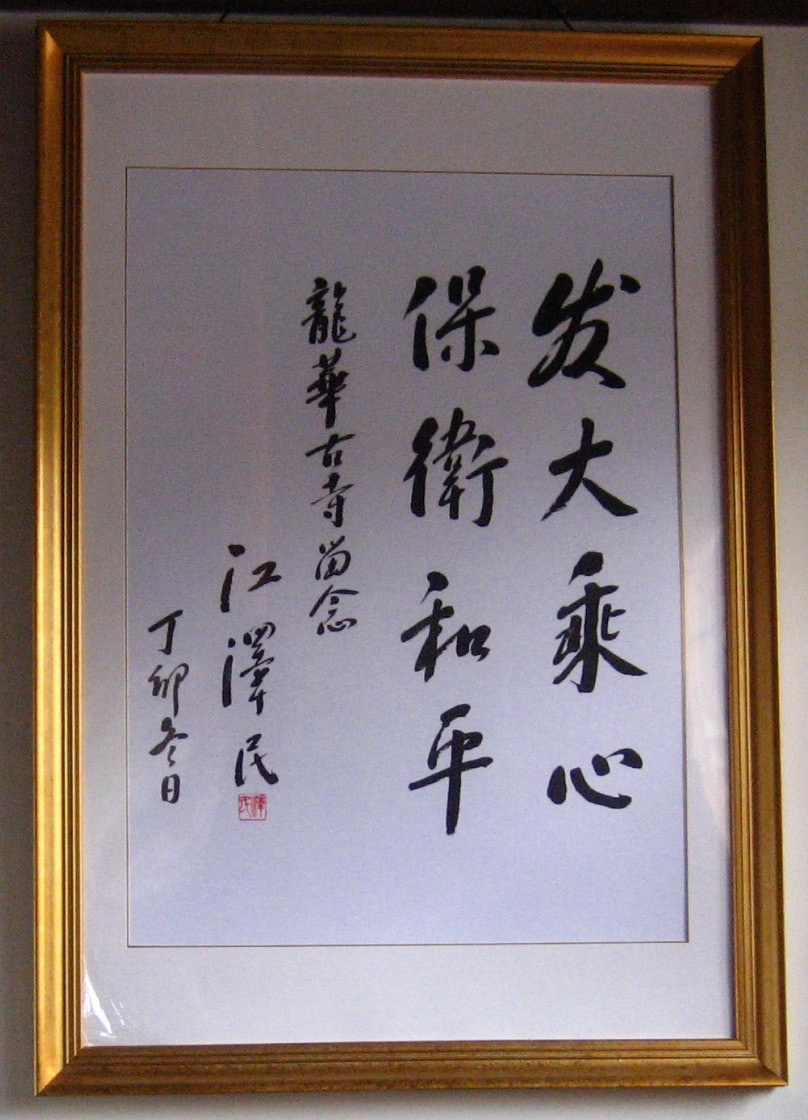 发大乘心
保衛和平
龍華古寺留念
江澤民
丁卯冬日
澤民